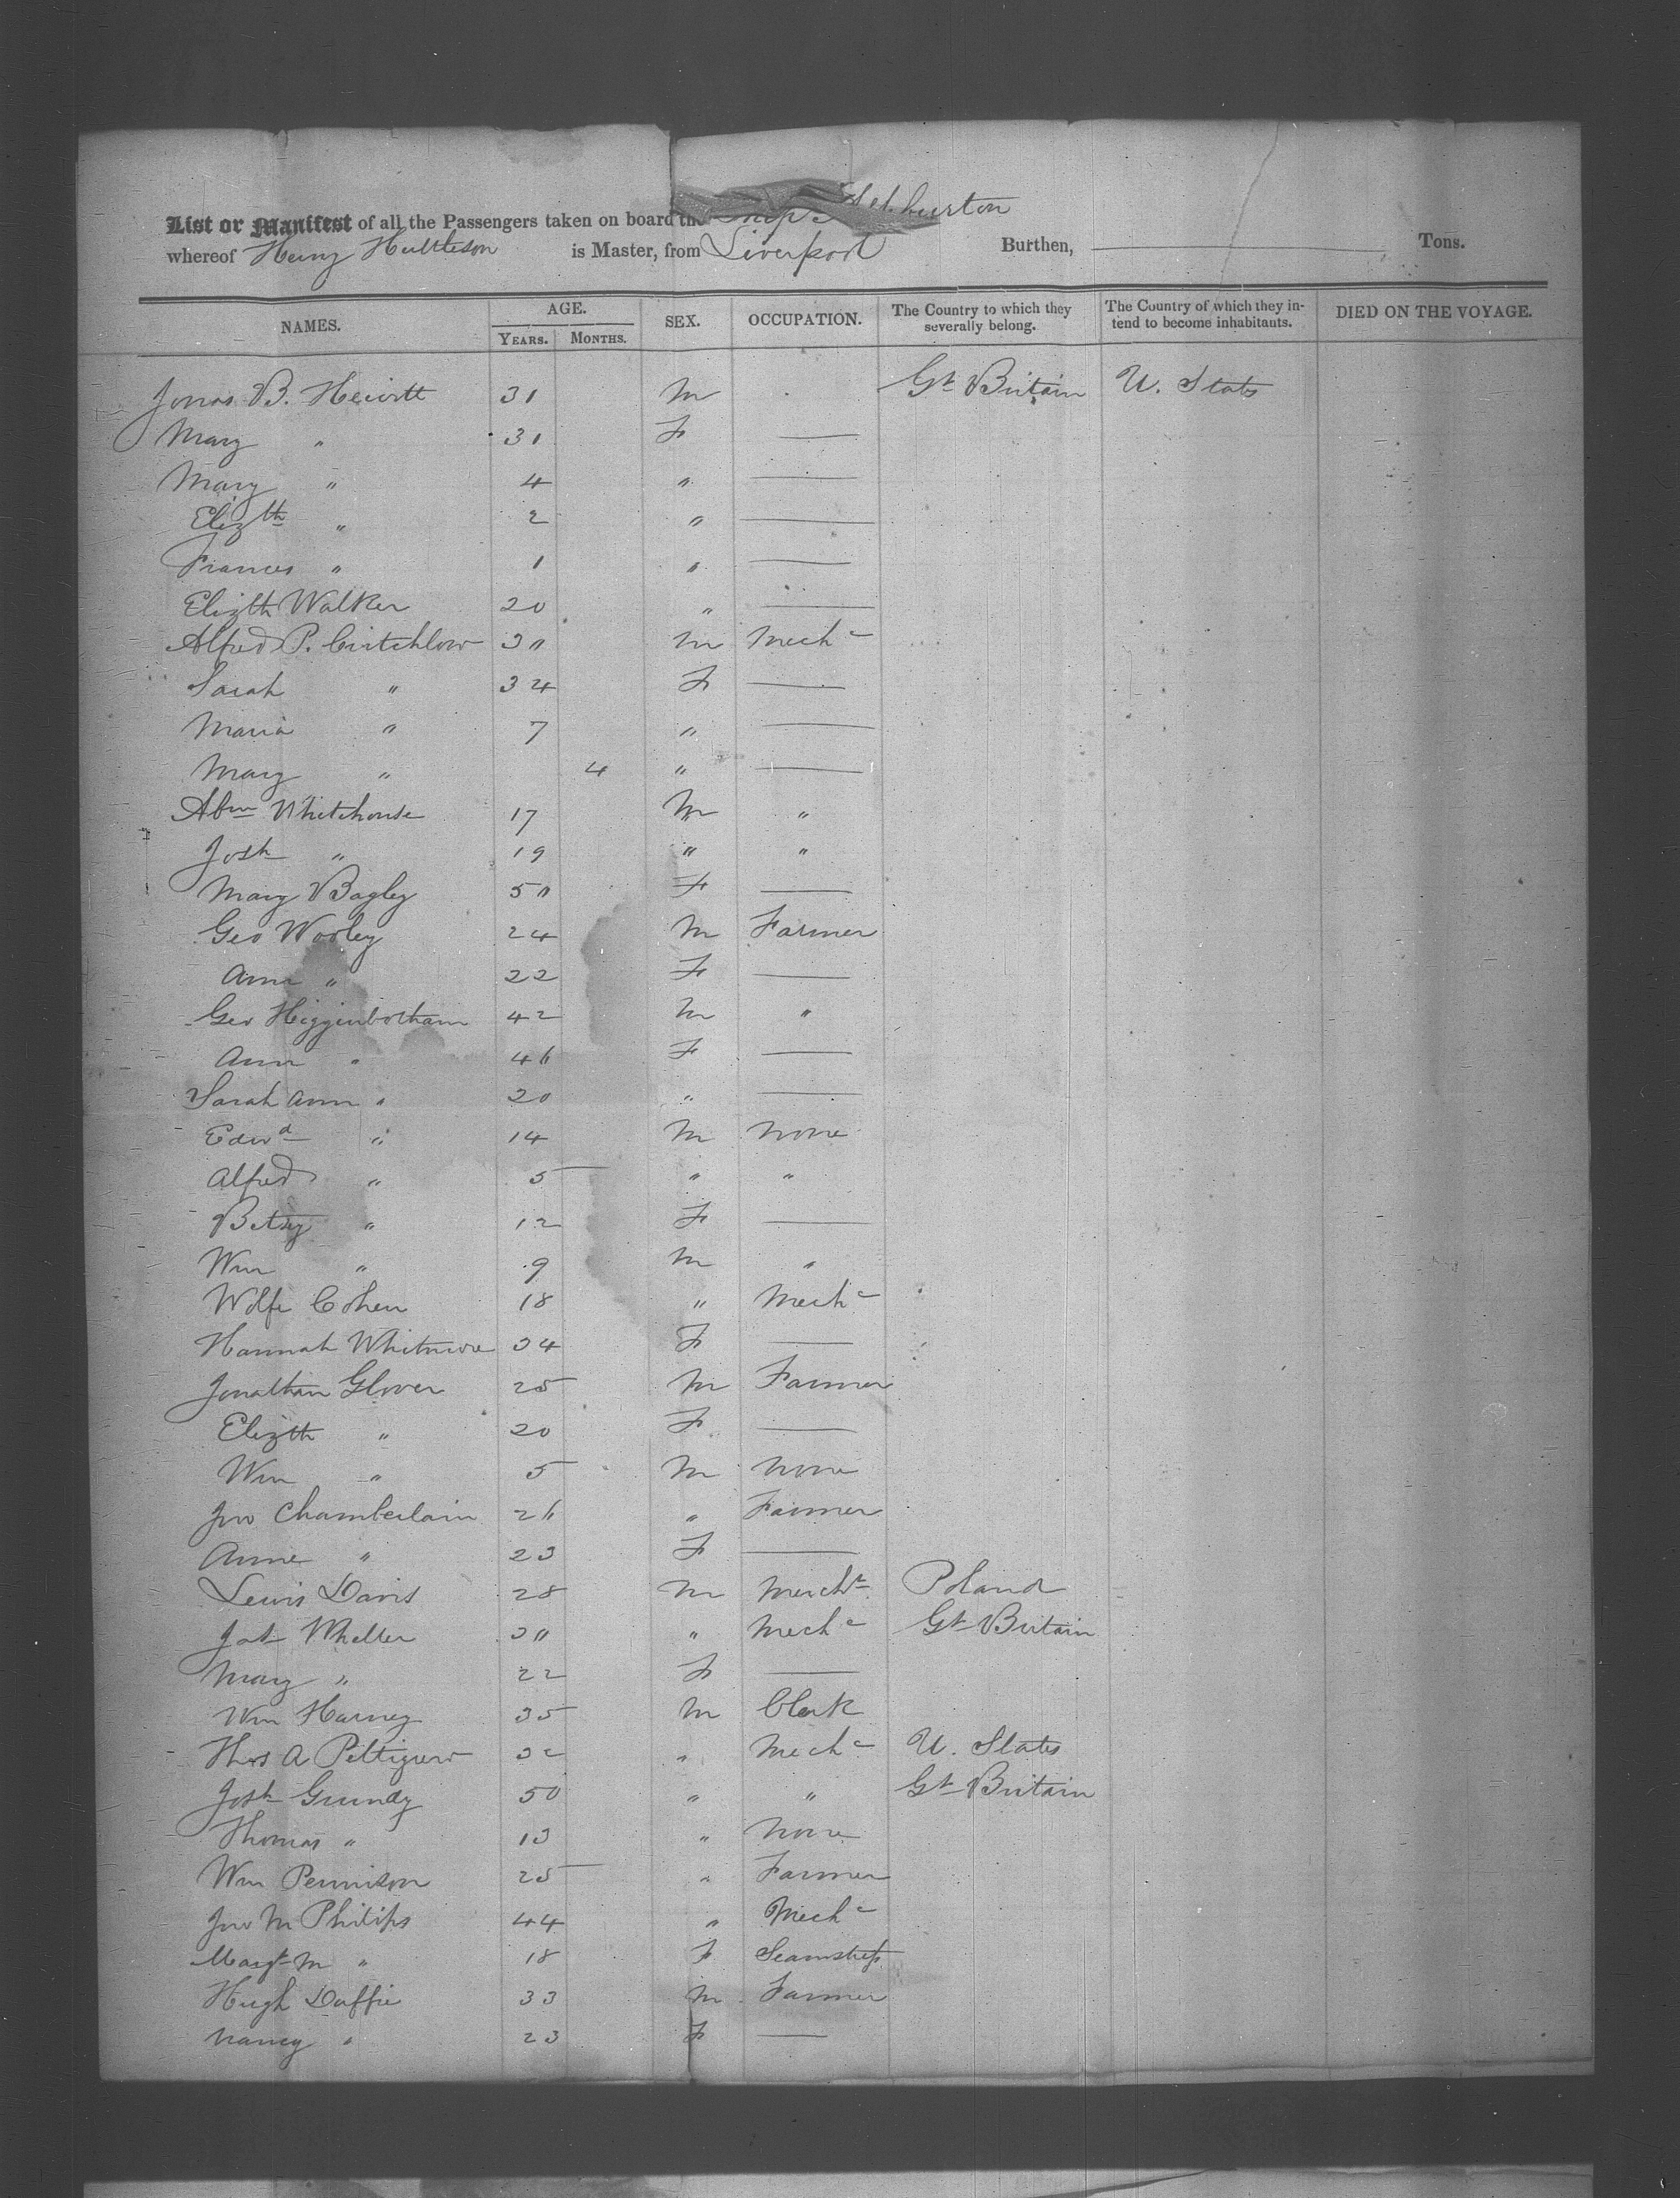 List or Manifest of all the Passengers taken on board the Ship
whereof Henry Huttleson is Master, from Liverpool Burthen, Tons.
NAMES. AGE. YEARS. MONTHS. SEX. OCCUPATION. The Country to which they severally belong. The Country of which they intend to become inhabitants. DIED ON THE VOYAGE.
Jonas B. Hewitt 31 M Gt Britain U. States
Mary " 31 F —
Mary " 4 " —
Elizth " 2 " —
Frances " 1 " —
Elizth Walker 20 " —
Alfred P. Critchlow 30 M Mechc
Sarah " 34 F —
Maria " 7 " —
Mary " 4 " —
Abm Whitehouse 17 M "
Josh " 19 " "
Mary Bagley 50 F —
Geo Wooley 24 M Farmer
Ann " 22 F —
Geo Higginbotham 42 M "
Ann " 46 F —
Sarah Ann " 20 " —
Edwd " 14 M None
Alfred " 5 " "
Betsy " 12 F —
Wm " 9 M "
Wolfe Cohen 18 " Mechc
Hannah Whitmore 34 F —
Jonathan Glover 25 M Farmer
Elizth " 20 F —
Wm " 5 M None
Jno Chamberlain 26 " Farmer
Anne " 23 F —
Lewis Davis 28 M Mercht Poland
Jas Wheller 30 " Mechc Gt Britain
Mary " 22 F —
Wm Harney 35 M Clerk
Thos A Pettigrew 32 " Mechc U. States
Josh Grundy 50 " " Gt Britain
Thomas " 13 " None
Wm Pennison 25 " Farmer
Jno M Philips 44 " Mechc
Margt M " 18 F Seamstress
Hugh Duffie 33 M Farmer
Nancy " 23 F —